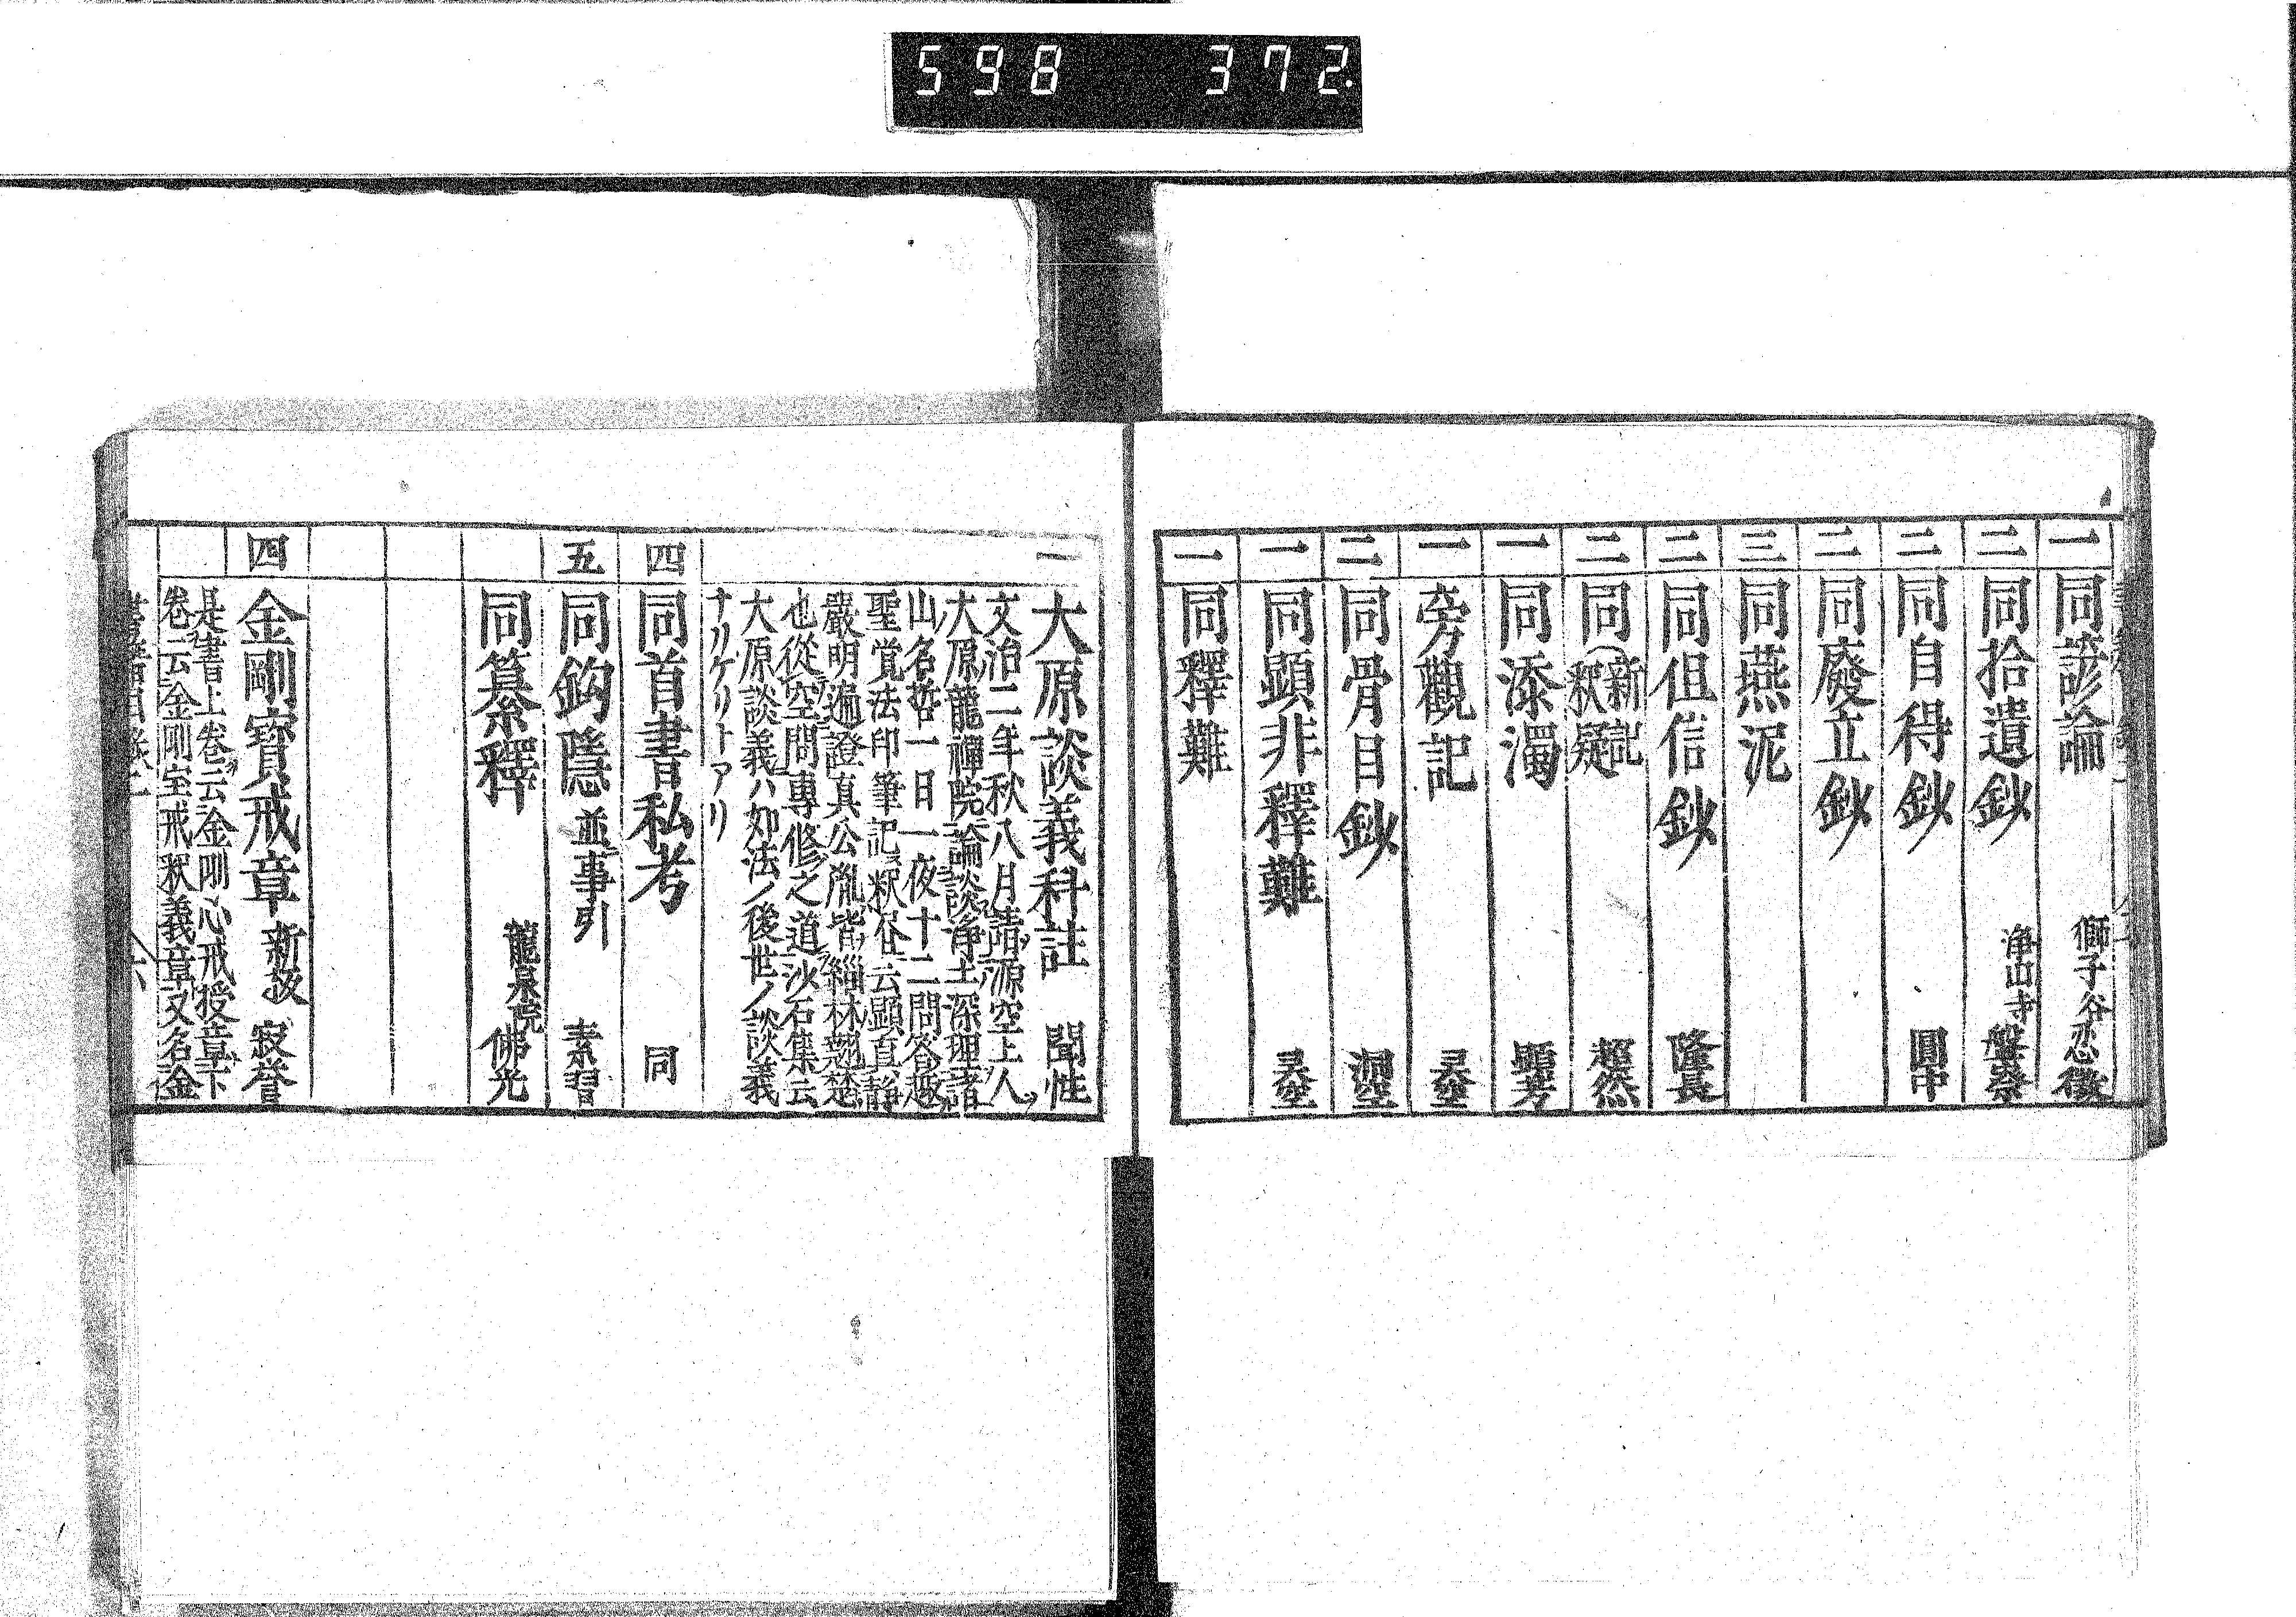 598 372.
一 同諺論 獅子谷忍徴
二 同拾遺鈔 浄出寺
二 同自得鈔 圓中
二 同廢立鈔
三 同燕泥
二 同但信鈔 隆長
二 同新記釈疑 超然
一 同添濁 顕考
一 旁觀記 灵空
二 同骨目鈔 洞空
一 同顕非釋難 灵空
一 同釋難
一 大原談義科註 聞性
文治二年秋八月請源空上人
大原龍禪院論談浄土深理諸
山名哲一日一夜十二問答
聖覚法印筆記云顕真静
嚴明遍證真公胤皆緇林翹楚
也從空問專修之道沙石集云
大原談義ハ如法ノ後世ノ談義
ナリケリトアリ
四 同首書私考 同
五 同鈎隱並事引 素習
同纂釋 龍泉院佛光
四 金剛寶戒章 新扱 寂誉
是書上卷云金剛心戒授章下
卷云金剛宝戒釈義章又名金